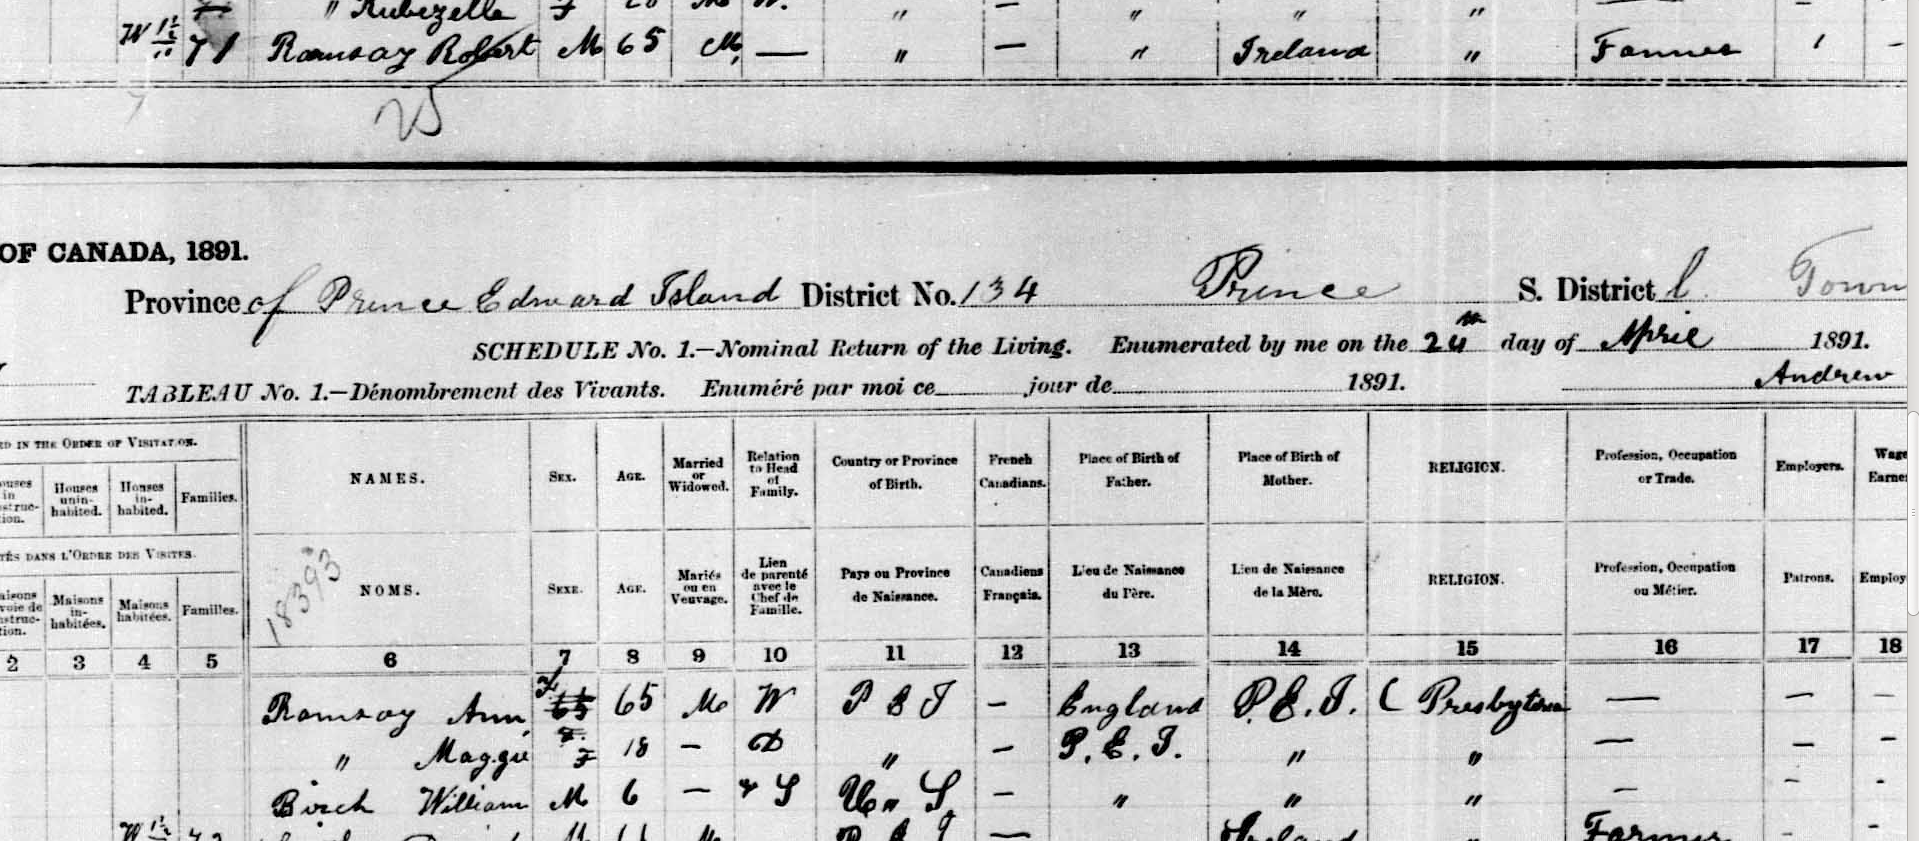 " Rubezella F " — " " "
W 1½/10 71 Ramsay Robert M 65 M — " — " Ireland " Farmer 1 —
25
OF CANADA, 1891.
Province of Prince Edward Island District No. 134 Prince S. District C. Town
SCHEDULE No. 1.—Nominal Return of the Living. Enumerated by me on the 24th day of April 1891.
TABLEAU No. 1.—Dénombrement des Vivants. Enuméré par moi ce jour de 1891. Andrew
ED IN THE ORDER OF VISITATION.
ouses in nstruction. Houses uninhabited. Houses inhabited. Families. NAMES. SEX. AGE. Married or Widowed. Relation to Head of Family. Country or Province of Birth. French Canadians. Place of Birth of Father. Place of Birth of Mother. RELIGION. Profession, Occupation or Trade. Employers. Wage Earne
TÉS DANS L'ORDRE DES VISITES.
18393
aisons voie de nstruction. Maisons inhabitées. Maisons habitées. Familles. NOMS. SEXE. AGE. Mariés ou en Veuvage. Lien de parenté avec le Chef de Famille. Pays ou Province de Naissance. Canadiens Français. Lieu de Naissance du Père. Lieu de Naissance de la Mère. RELIGION. Profession, Occupation ou Métier. Patrons. Employ
2 3 4 5 6 7 8 9 10 11 12 13 14 15 16 17 18
Ramsay Ann F 65 65 M W P E I — England P.E.I. ( Presbyterian — — —
" Maggie F 18 — D " — P.E.I. " " — — —
Birch William M 6 — S U. S — " " " — - -
P E I — Ireland " Farmer -